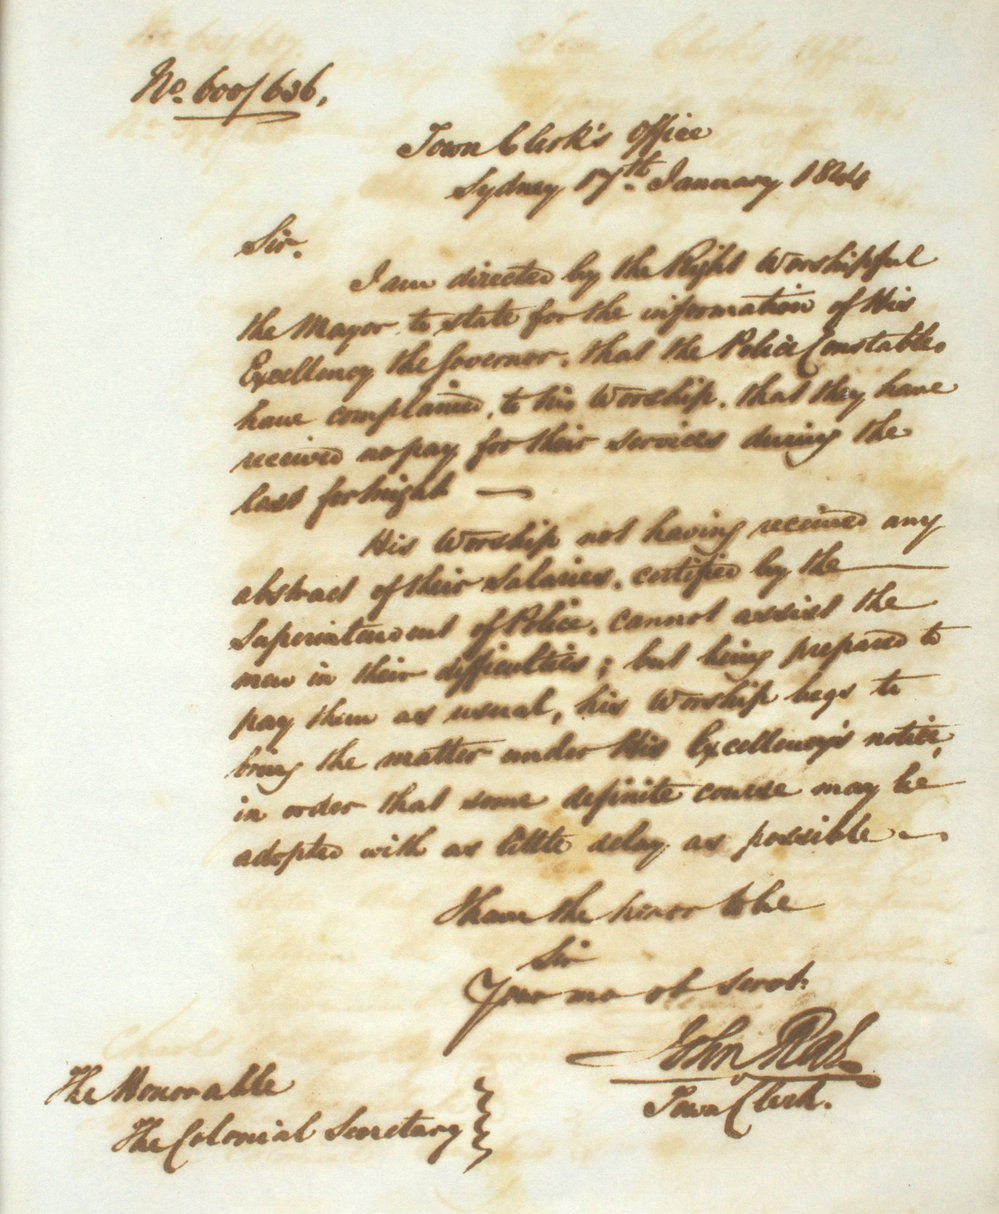 No. 600/636,
Town Clerk's Office
Sydney 17th January 1844
Sir.
I am directed by the Right Worshipful
the Mayor to state for the information of His
Excellency the Governor, that the Police Constables
have complained, to his Worship, that they have
received no pay for their services during the
last fortnight —
His Worship not having received any
abstract of their Salaries, certified by the —
Superintendent of Police, cannot assist the
men in their difficulties; but being prepared to
pay them as usual, his Worship begs to
bring the matter under His Excellency's notice,
in order that some definite course may be
adopted with as little delay as possible —
I have the honor to be
Sir
Your mo ob servt.
John Rae
Town Clerk.
The Honorable
The Colonial Secretary